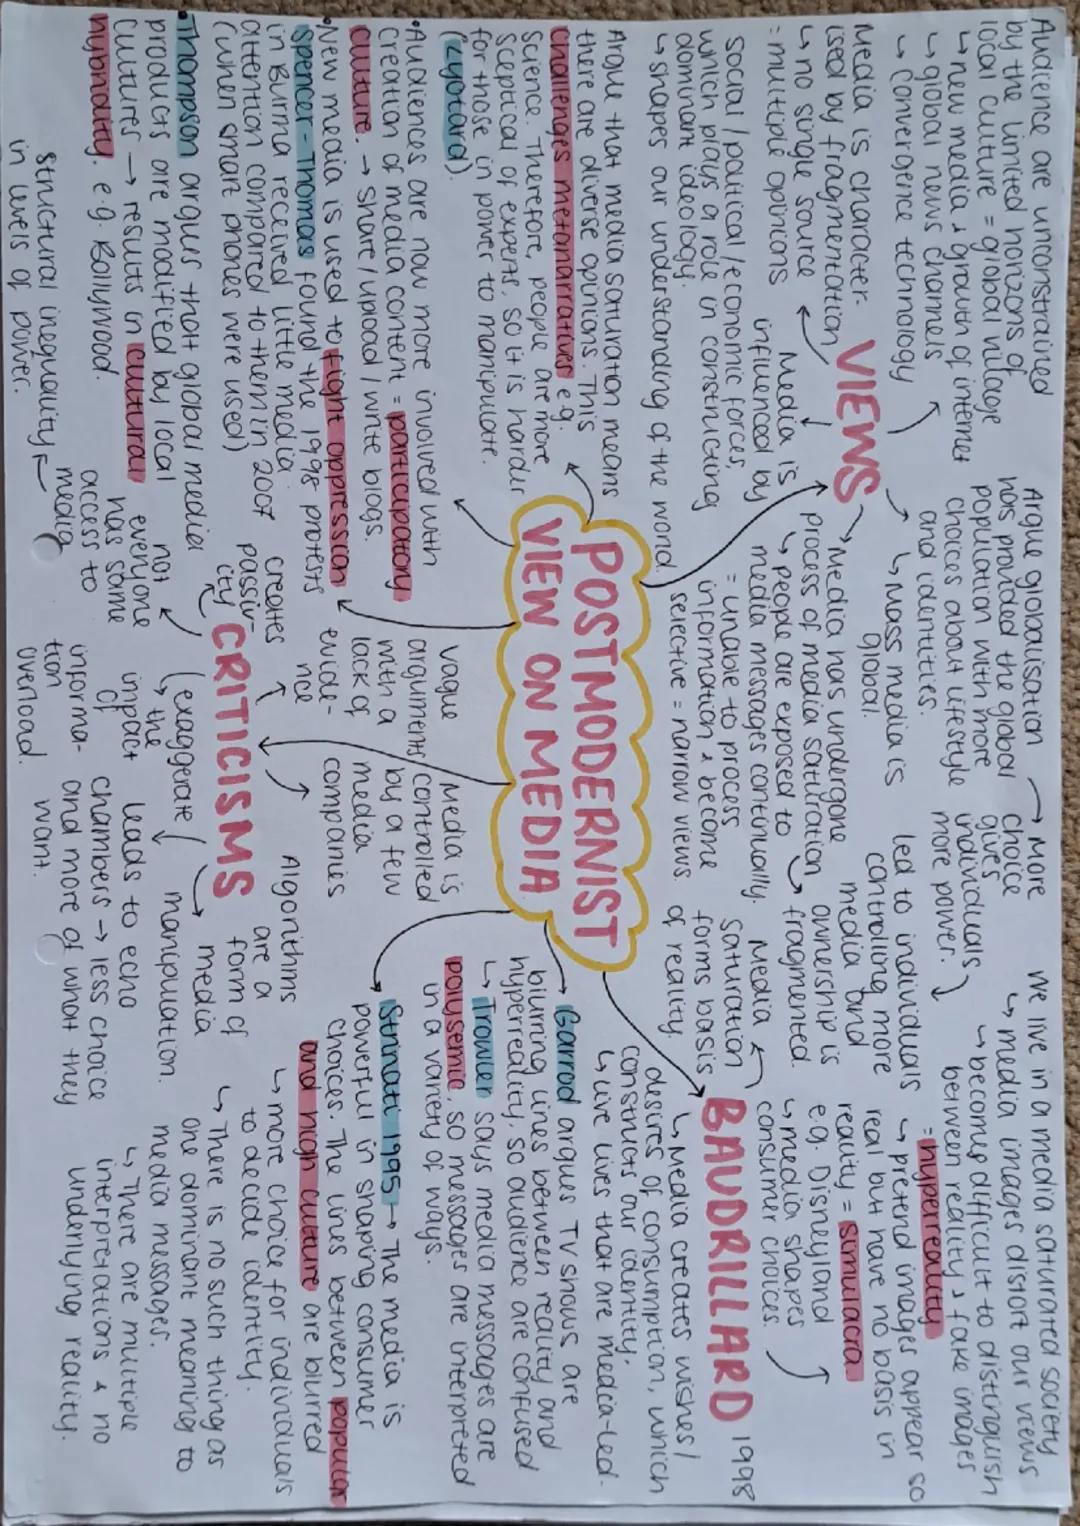 Audience are unconstrained
by the limited horizons of
local culture = global village
↳ new media & growth of internet
↳ global news channels
↳ convergence technology
Argue globalisation → More
has provided the global
population with more
choices about lifestyle
and identities.
choice
gives
individuals
more power.
↳ Mass media is
global.
VIEWS
Media is character-
ised by fragmentation
↳ no single source
= multiple opinions
Media is
influenced by
social/political/economic forces,
which plays a role in constructing
dominant ideology.
↳ shapes our understanding of the world
→ Media has undergone
process of media saturation
↳ people are exposed to
media messages continually.
= unable to process
information & become
selective = narrow views
fragmented
media
ownership is
led to individuals
controlling more
media and
We live in a media saturated society
↳ media images distort our views
↳ becomes difficult to distinguish
between reality & fake images
= hyperreality
↳ pretend images appear so
real but have no basis in
reality = simulacra
e.g. Disneyland
↳ media shapes
consumer choices.
Media
saturation
forms basis
of reality.
BAUDRILLARD 1998
↳ Media creates wishes/
desires of consumption, which
constructs our identity.
↳ live lives that are media-led.
POSTMODERNIST
VIEW ON MEDIA
Argue that media saturation means
there are diverse opinions. This
challenges metanarratives e.g.
science. Therefore, people are more
sceptical of experts, so it is harder
for those in power to manipulate.
(Lyotard).
• Audiences are now more involved with
creation of media content = participatory
culture. → share/upload/write blogs.
• New media is used to fight oppression
Spencer-Thomas found the 1998 protests
in Burma received little media
attention compared to them in 2007
(when smart phones were used)
• Thompson argues that global media
products are modified by local
cultures → results in cultural
hybridity. e.g. Bollywood.
→ Garrod argues TV shows are
blurring lines between reality and
hyperreality, so audience are confused
↳ Trowler says media messages are
polysemic, so messages are interpreted
in a variety of ways.
Strinati 1995 → The media is
powerful in shaping consumer
choices. The lines between popular
and high culture are blurred
↳ more choice for individuals
to decide identity.
↳ There is no such thing as
one dominant meaning to
media messages.
↳ There are multiple
interpretations & no
underlying reality.
CRITICISMS
vague
arguments
with a
lack of
evide-
nce
Media is
controlled
by a few
media
companies
creates
passiv-
ity
Algorithms
are a
form of
media
manipulation.
not
everyone
has same
access to
media
structural inequality
in levels of power.
(exaggerate)
↳ the
impact
of
informa-
tion
overload.
leads to echo
chambers → less choice
and more of what they
want.